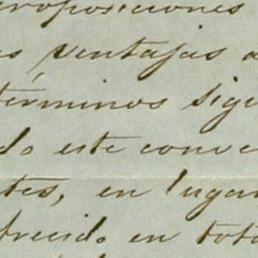 proposiciones
ventajas
términos sigu
do este conve
tes, en lugar
frecido en tota